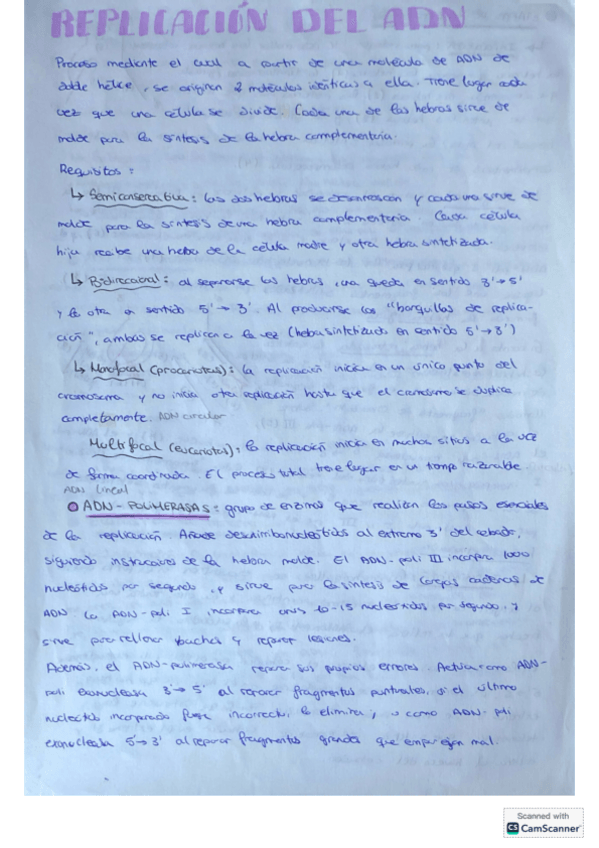 REPLICACIÓN DEL ADN
Proceso mediante el cual a partir de una molécula de ADN de
doble hélice, se originan 2 moléculas idénticas a ella. Tiene lugar cada
vez que una célula se divide. Cada una de las hebras sirve de
molde para la síntesis de la hebra complementaria.
Requisitos:
↳ Semiconservativa: las dos hebras se desenroscan y cada una sirve de
molde para la síntesis de una hebra complementaria. Cada célula
hija recibe una hebra de la célula madre y otra hebra sintetizada.
↳ Bidireccional: al separarse las hebras, una queda en sentido 3'→5'
y la otra en sentido 5'→3'. Al producirse las "horquillas de replica-
ción", ambas se replican a la vez (hebra sintetizada en sentido 5'→3')
↳ Monofocal (procariotas): la replicación inicia en un único punto del
cromosoma y no inicia otra replicación hasta que el cromosoma se duplica
completamente. ADN circular
Multifocal (eucariotas): la replicación inicia en muchos sitios a la vez
de forma coordinada. El proceso total tiene lugar en un tiempo razonable.
ADN lineal
ADN-POLIMERASAS: grupo de enzimas que realizan los pasos esenciales
de la replicación. Añade desoxirribonucleótidos al extremo 3' del cebador,
siguiendo instrucciones de la hebra molde. El ADN-poli III incorpora 1000
nucleótidos por segundo, y sirve para la síntesis de largas cadenas de
ADN. La ADN-poli I incorpora unos 10-15 nucleótidos por segundo, y
sirve para rellenar huecos y reparar lesiones.
Además, el ADN-polimerasa repara sus propios errores. Actúa como ADN-
poli exonucleasa 3'→5' al reparar fragmentos puntuales, si el último
nucleótido incorporado fuese incorrecto, lo elimina; o como ADN-poli
exonucleasa 5'→3' al reparar fragmentos grandes que emparejan mal.
Scanned with
CS CamScanner